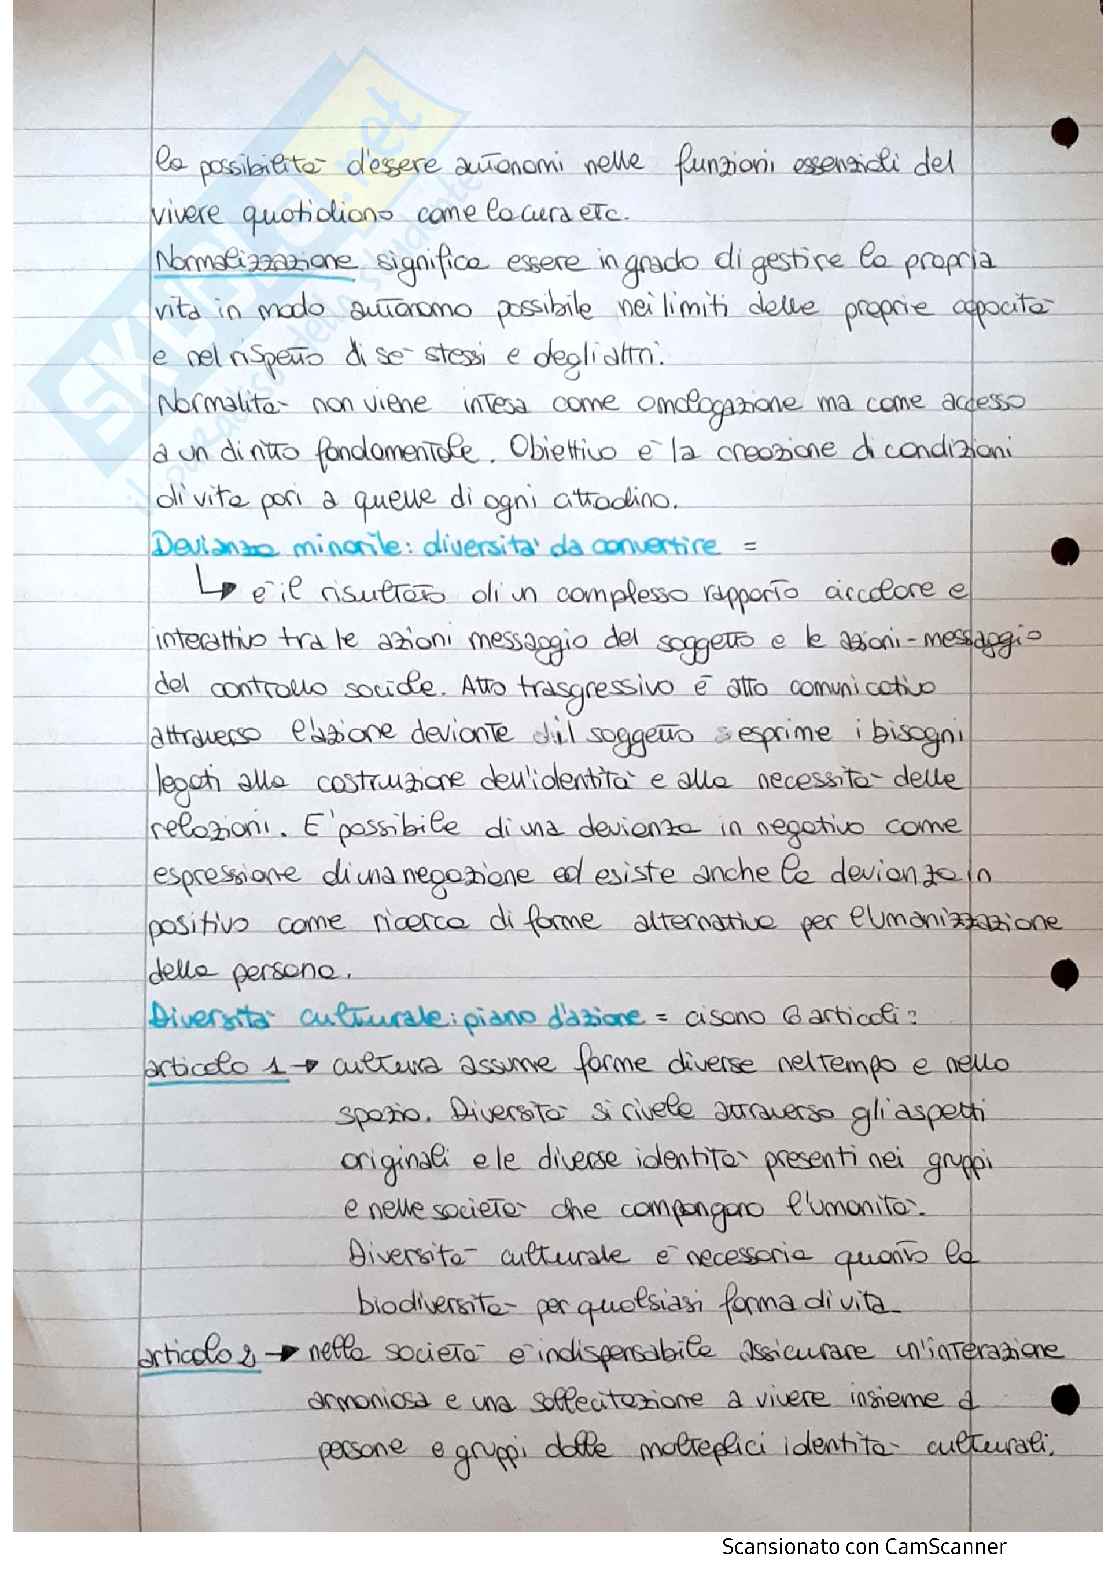 la possibilità d'essere autonomi nelle funzioni essenziali del
vivere quotidiano come la cura etc.
Normalizzazione significa essere in grado di gestire la propria
vita in modo autonomo possibile nei limiti delle proprie capacità
e nel rispetto di sé stessi e degli altri.
Normalità non viene intesa come omologazione ma come accesso
a un diritto fondamentale. Obiettivo è la creazione di condizioni
di vita pari a quelle di ogni cittadino.
Devianza minorile: diversità da convertire =
è il risultato di un complesso rapporto circolare e
interattivo tra le azioni messaggio del soggetto e le azioni-messaggio
del controllo sociale. Atto trasgressivo è atto comunicativo
attraverso l'azione deviante il soggetto esprime i bisogni
legati alla costruzione dell'identità e alla necessità delle
relazioni. E' possibile di una devianza in negativo come
espressione di una negazione ed esiste anche la devianza in
positivo come ricerca di forme alternative per l'umanizzazione
della persona.
Diversità culturale: piano d'azione = ci sono 6 articoli:
articolo 1 → cultura assume forme diverse nel tempo e nello
spazio. Diversità si rivela attraverso gli aspetti
originali e le diverse identità presenti nei gruppi
e nelle società che compongono l'umanità.
Diversità culturale è necessaria quanto la
biodiversità per qualsiasi forma di vita
articolo 2 → nella società è indispensabile assicurare un'interazione
armoniosa e una sollecitazione a vivere insieme a
persone e gruppi dalle molteplici identità culturali.
SKUOLA.net
il paradiso dello studente
Scansionato con CamScanner